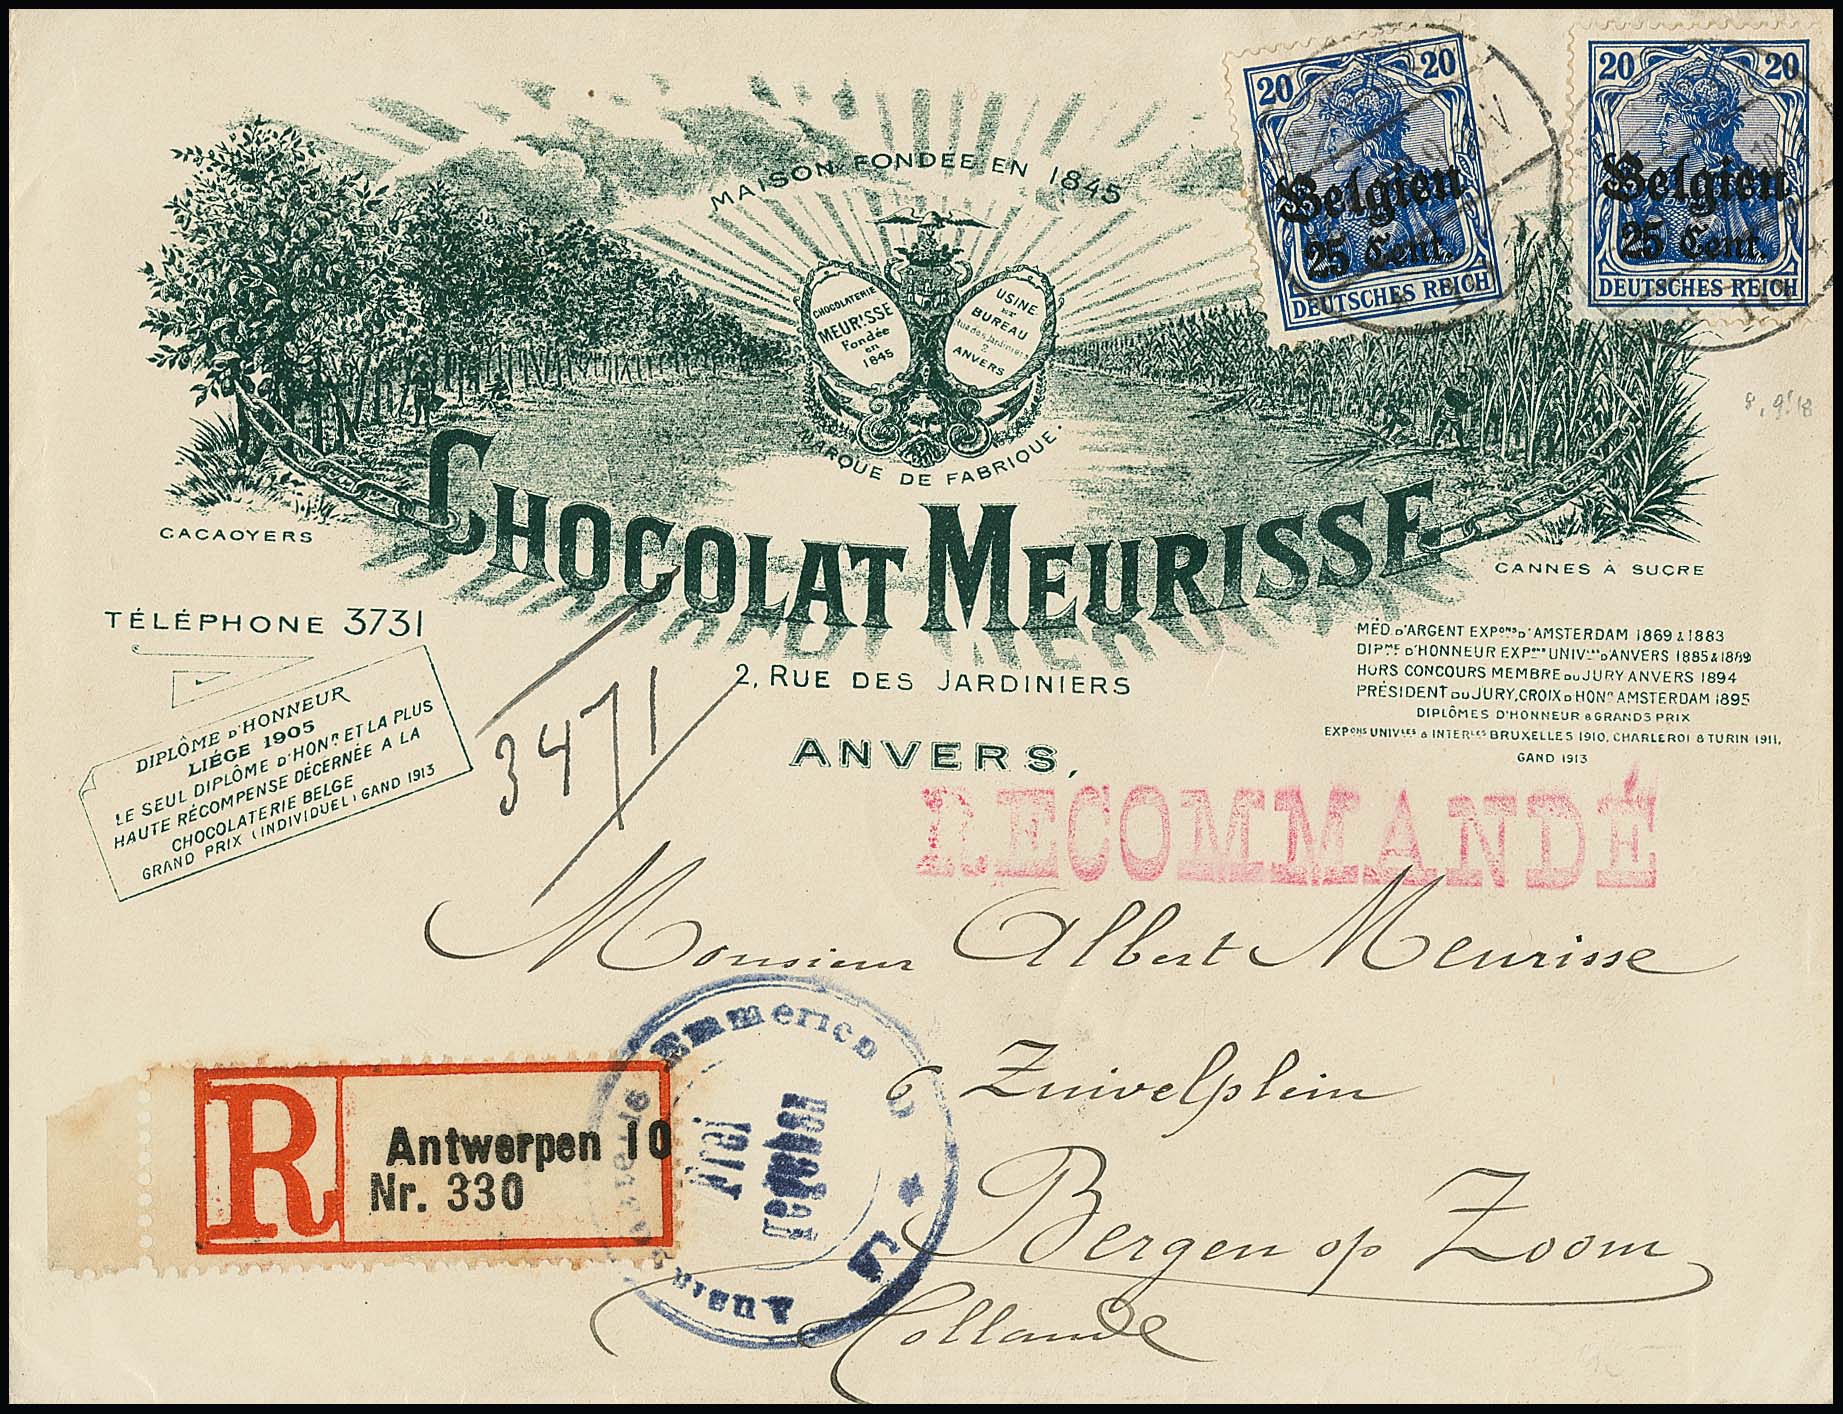 20 20
Belgien
25 Cent.
DEUTSCHES REICH
20 20
Belgien
25 Cent.
DEUTSCHES REICH
MAISON FONDEE EN 1845
CHOCOLATERIE
MEURISSE
Fondée
en
1845
USINE
ET
BUREAU
Rue des Jardiniers
2
ANVERS
MARQUE DE FABRIQUE.
8.9.18
CHOCOLAT MEURISSE
CACAOYERS
CANNES À SUCRE
TÉLÉPHONE 3731
2, RUE DES JARDINIERS
ANVERS,
DIPLÔME D'HONNEUR
LIÉGE 1905
LE SEUL DIPLÔME D'HONR ET LA PLUS
HAUTE RÉCOMPENSE DÉCERNÉE A LA
CHOCOLATERIE BELGE
GRAND PRIX (INDIVIDUEL) GAND 1913
MÉD. D'ARGENT EXPONS D'AMSTERDAM 1869 & 1883
DIPME D'HONNEUR EXPONS UNIVLES D'ANVERS 1885 & 1889
HORS CONCOURS MEMBRE DU JURY ANVERS 1894
PRÉSIDENT DU JURY, CROIX D'HONR AMSTERDAM 1895
DIPLÔMES D'HONNEUR & GRANDS PRIX
EXPONS UNIVLES & INTERLES BRUXELLES 1910, CHARLEROI & TURIN 1911,
GAND 1913
3471
RECOMMANDÉ
Monsieur Albert Meurisse
6 Zuivelplein
Bergen op Zoom
Hollande
R
Antwerpen 10
Nr. 330
Emmerich
Frei
gegeben